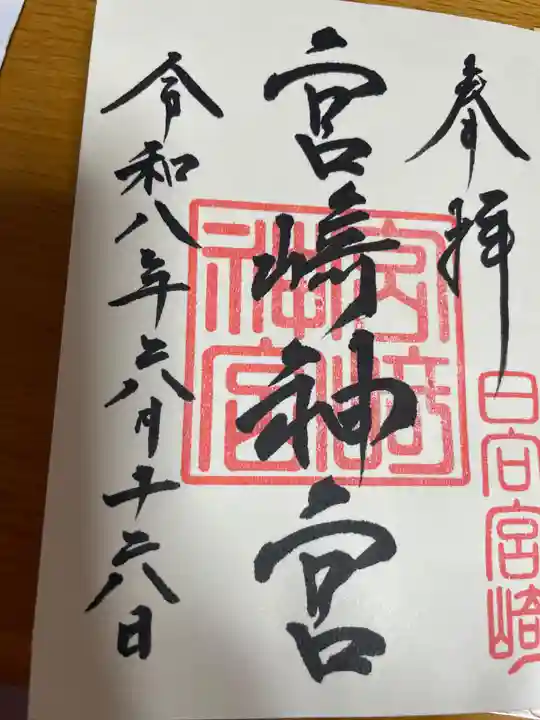 奉拝
日向宮崎
宮崎神宮
宮崎神宮
令和八年六月十六日